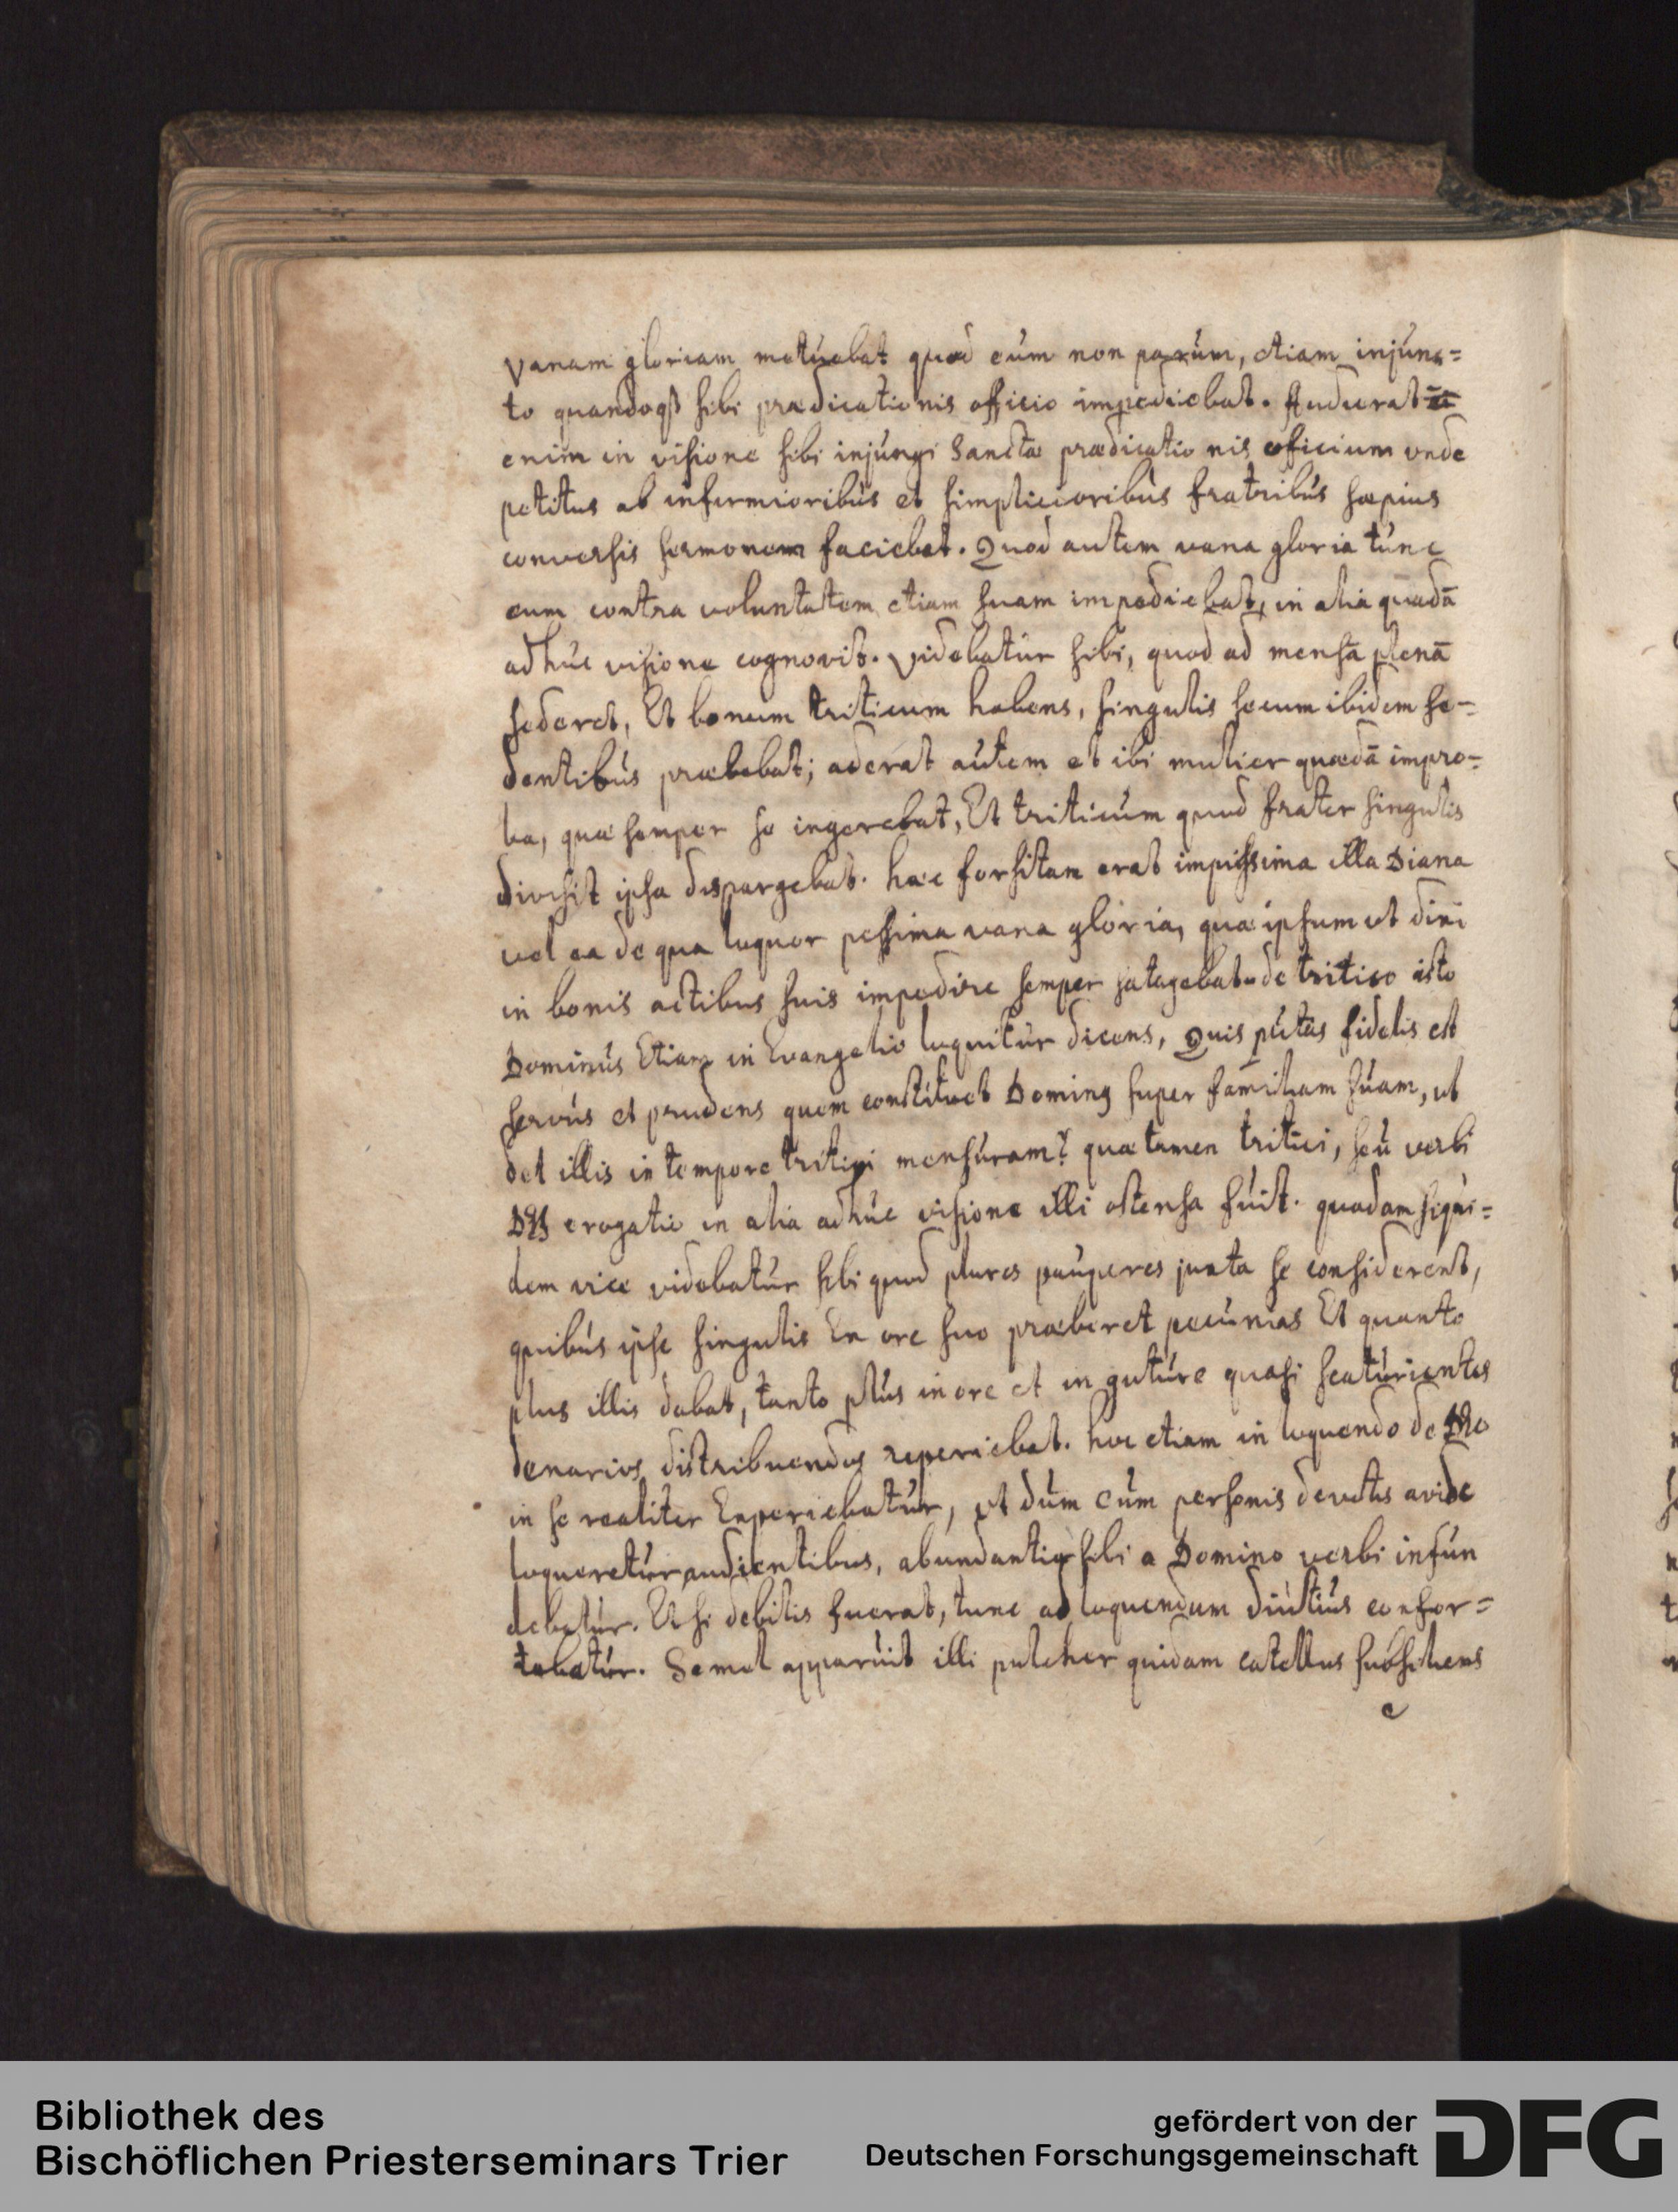 vanam gloriam metuebat quod eum non parum, etiam injunc=
to quandoqß sibi prædicationis officio impediebat. Audierat
enim in visione sibi injungi Sanctæ prædicationis officium unde
petitus ab infirmioribus et simplicioribus fratribus sæpius
conversis sermonem faciebat. Quod autem vana gloria tunc
eum contra voluntatem etiam suam impediebat, in alia quadā
adhuc visione cognovit. Videbatur sibi, quod ad mensā plenā
sederet, Et bonum triticum habens, singulis secum ibidem se=
dentibus præbebat; aderat autem et ibi mulier quædā impro=
ba, quæ semper se ingerebat, Et triticum quod frater singulis
divisit ipsa dispargebat. hæc forsitan erat impiissima illa Diana
vel ea de qua loquor pessima vana gloria, quæ ipsum ut dixi
in bonis actibus suis impedire semper satagebat. de tritico isto
Dominus Etiam in Evangelio loquitur dicens, Quis putas fidelis est
servus et prudens quem constituet Dominꝰ super familiam suam, ut
det illis in tempore tritici mensuram? quæ tamen tritici, seu verbi
Dei erogatio in alia adhuc visione illi ostensa fuit. quadam siqui=
dem vice videbatur sibi quod plures pauperes juxta se considerent,
quibus ipse singulis Ex ore suo præberet pecunias Et quanto
plus illis dabat, tanto plus in ore et in guture quasi scaturientes
denarios distribuendos reperiebat. hoc etiam in loquendo de Deo
in se realiter Experiebatur, ut dum cum personis devotis avide
loqueretur audientibus, abundantior sibi a Domino verbi infun
debatur. Et si debilis fuerat, tunc ad loquendum diutius confor=
tabatur. Semel apparuit illi pulcher quidam catellus subsiliens
e
Bibliothek des
Bischöflichen Priesterseminars Trier
gefördert von der
Deutschen Forschungsgemeinschaft
DFG